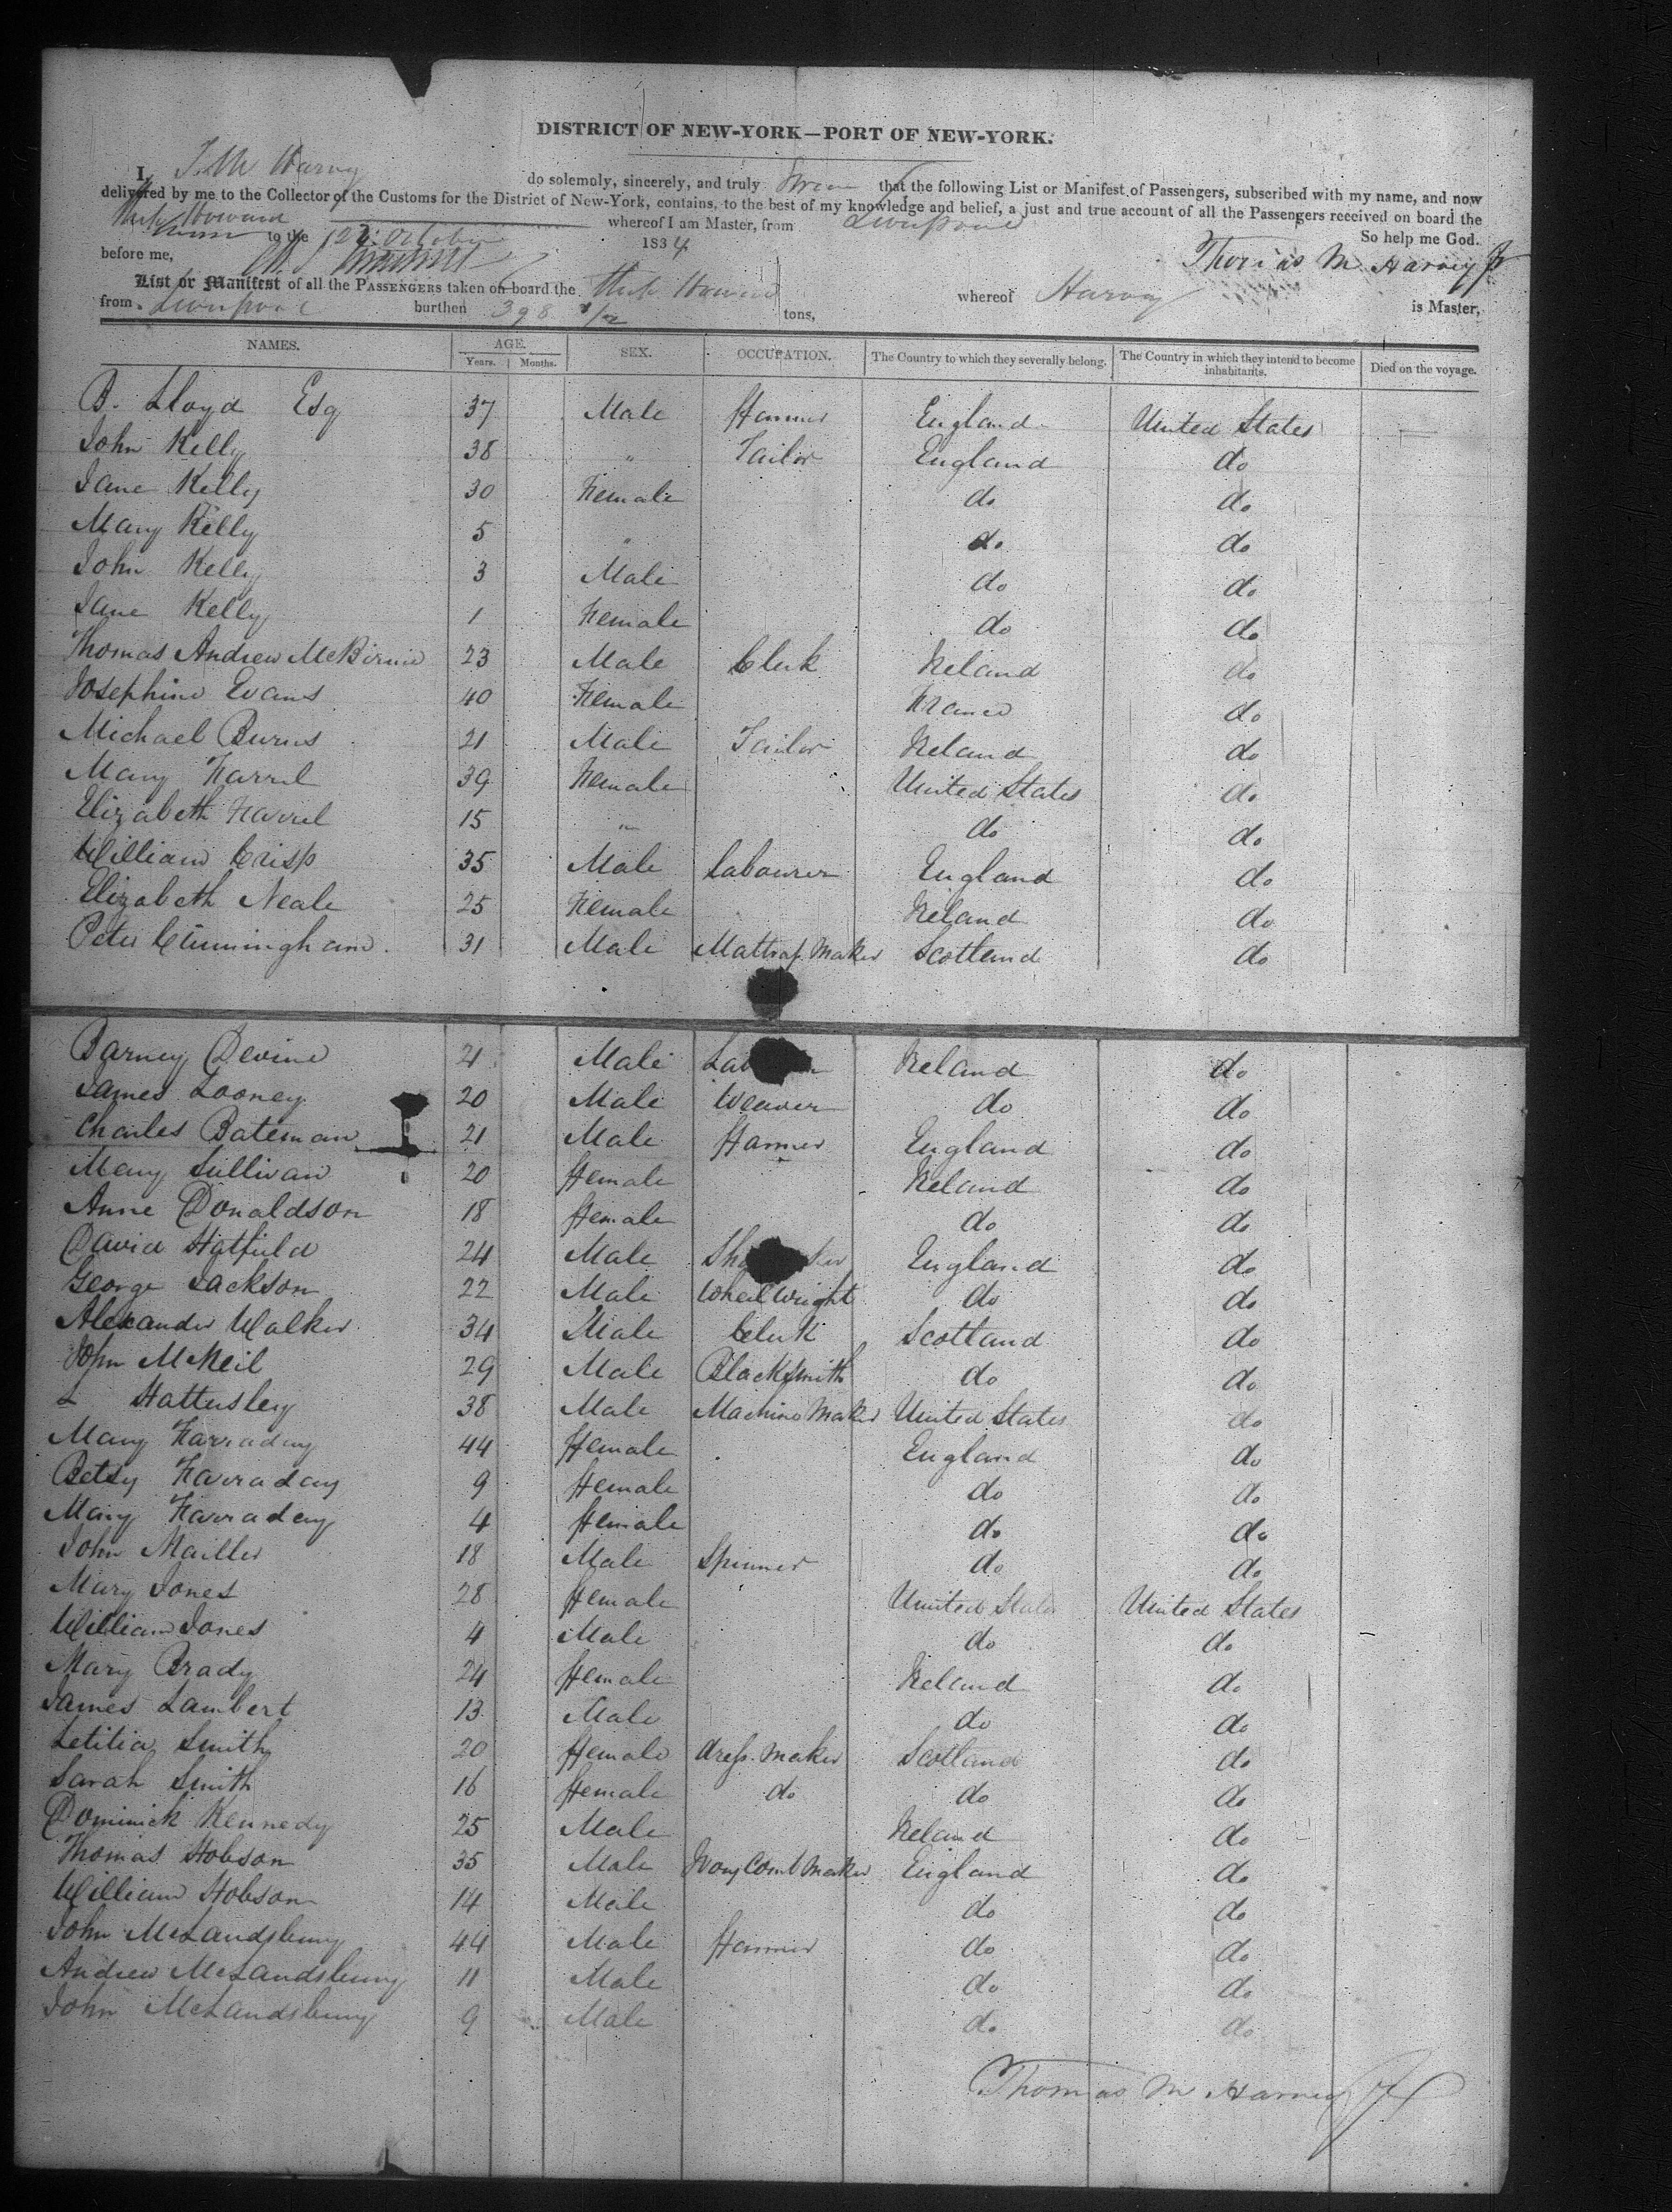 DISTRICT OF NEW-YORK—PORT OF NEW-YORK.
I, T. M Harvey do solemnly, sincerely, and truly Swear that the following List or Manifest of Passengers, subscribed with my name, and now
delivered by me to the Collector of the Customs for the District of New-York, contains, to the best of my knowledge and belief, a just and true account of all the Passengers received on board the
Ship Howard whereof I am Master, from Liverpool
Sworn to the 12 October 1834 So help me God.
before me, Thomas M Harvey Jr
List or Manifest of all the PASSENGERS taken on board the Ship Howard whereof Harvey is Master,
from Liverpool burthen 398 1/2 tons,
NAMES. AGE. Years. Months. SEX. OCCUPATION. The Country to which they severally belong. The Country in which they intend to become inhabitants. Died on the voyage.
B. Lloyd Esq 37 Male Farmer England United States
John Kelly 38 " Tailor England do
Jane Kelly 30 Female do do
Mary Kelly 5 " do do
John Kelly 3 Male do do
Jane Kelly 1 Female do do
Thomas Andrew McBirnie 23 Male Clerk Ireland do
Josephine Evans 40 Female France do
Michael Burns 21 Male Tailor Ireland do
Mary Farrel 39 Female United States do
Elizabeth Farrel 15 " do do
William Crisp 35 Male Labourer England do
Elizabeth Neale 25 Female Ireland do
Peter Cunningham 31 Male Mattrass Maker Scotland do
Barney Devine 21 Male Lab Ireland do
James Looney 20 Male Weaver do do
Charles Bateman 21 Male Farmer England do
Mary Sullivan 20 Female Ireland do
Anne Donaldson 18 Female do do
David Hatfield 24 Male Sho ker England do
George Jackson 22 Male Wheel Wright do do
Alexander Walker 34 Male Clerk Scotland do
John McNeil 29 Male Blacksmith do do
L Hattersley 38 Male Machine Maker United States do
Mary Farraday 44 Female England do
Betsy Farraday 9 Female do do
Mary Farraday 4 Female do do
John Mailler 18 Male Spinner do do
Mary Jones 28 Female United States United States
William Jones 4 Male do do
Mary Brady 24 Female Ireland do
James Lambert 13 Male do do
Letitia Smith 20 Female dress maker Scotland do
Sarah Smith 16 Female do do do
Dominick Kennedy 25 Male Ireland do
Thomas Hobson 35 Male Ivory Comb Maker England do
William Hobson 14 Male do do
John McLandsbury 44 Male Farmer do do
Andrew McLandsbury 11 Male do do
John McLandsbury 9 Male do do
Thomas M Harvey Jr